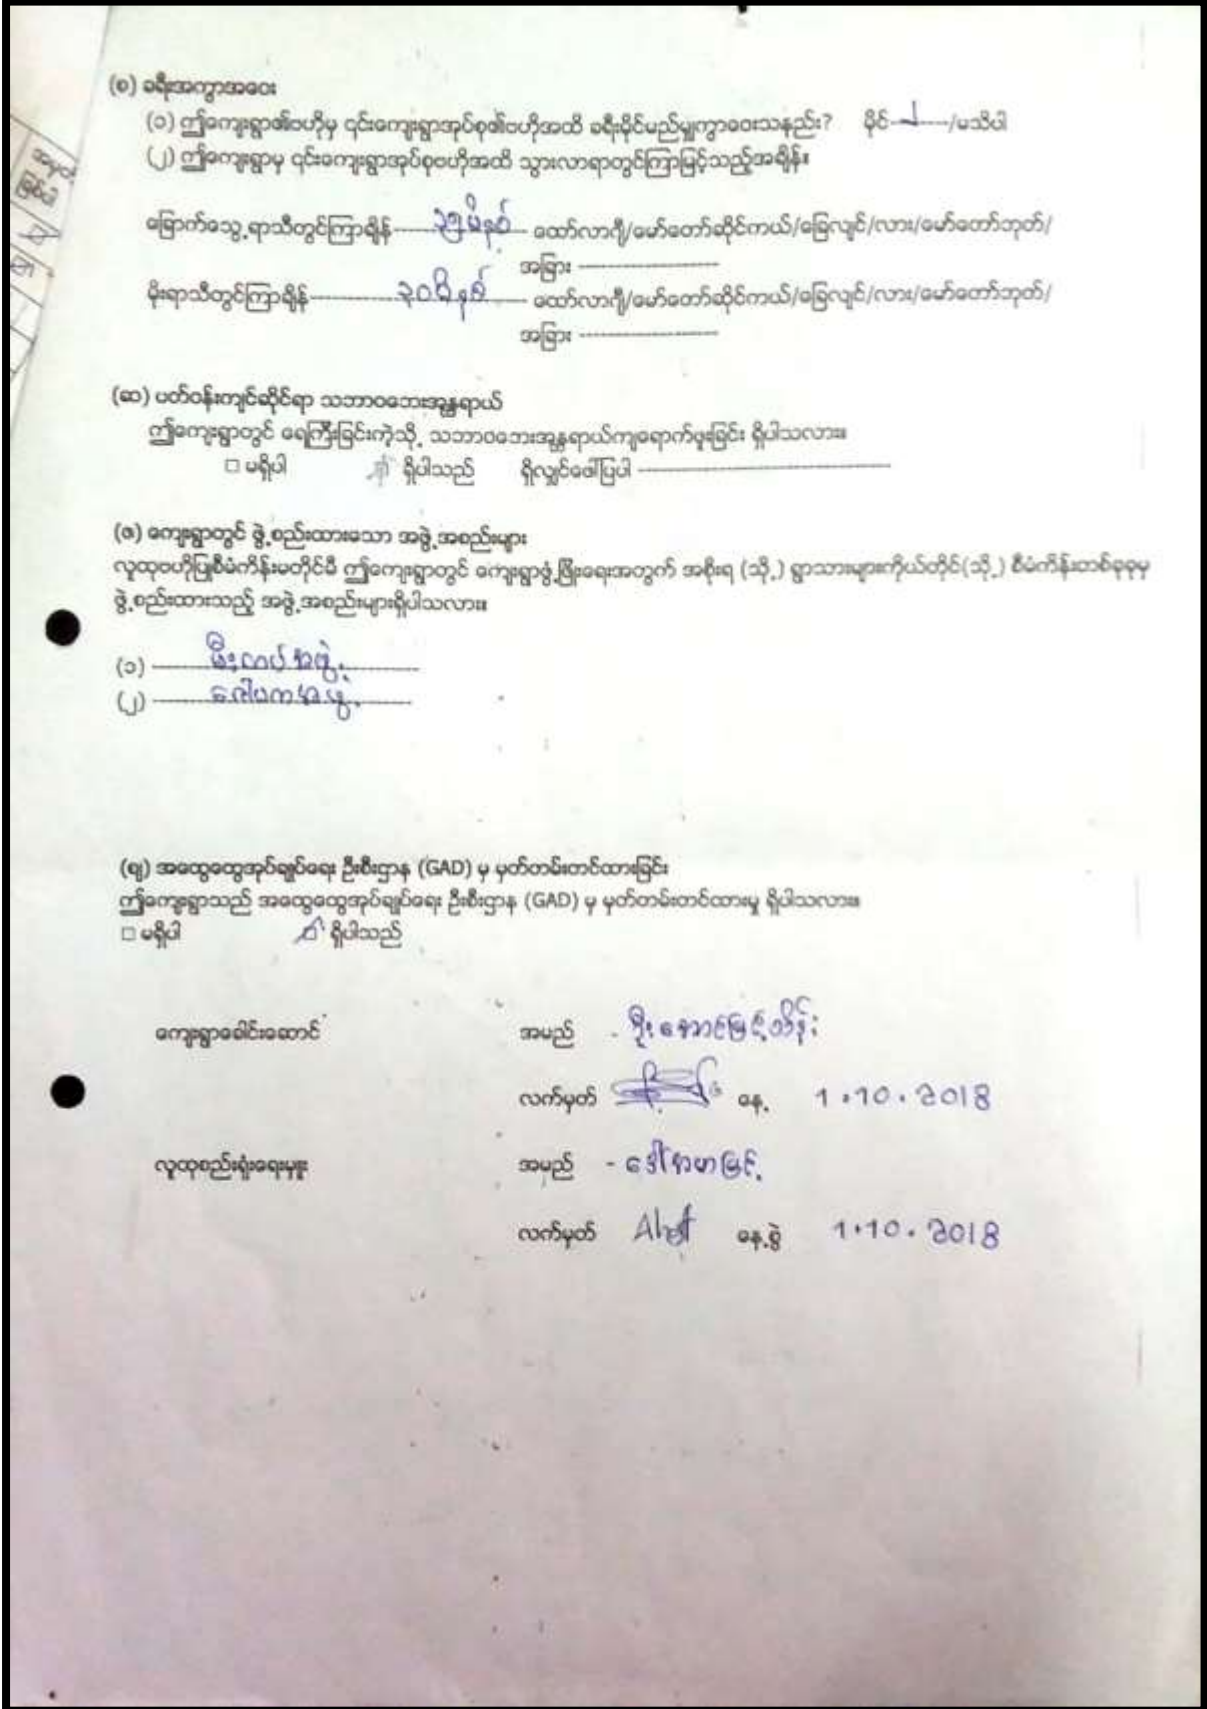 (စ) ခရီးအကွာအဝေး
(၁) ဤကျေးရွာ၏ဗဟိုမှ ၎င်းကျေးရွာအုပ်စု၏ဗဟိုအထိ ခရီးမိုင်မည်မျှကွာဝေးသနည်း? မိုင်-------/မသိပါ
(၂) ဤကျေးရွာမှ ၎င်းကျေးရွာအုပ်စုဗဟိုအထိ သွားလာရာတွင်ကြာမြင့်သည့်အချိန်။
အမှတ်
ဖြစ်ပါ
ခြောက်သွေ့ရာသီတွင်ကြာချိန်------၁၅မိနစ်---ထော်လာဂျီ/မော်တော်ဆိုင်ကယ်/ခြေလျင်/လား/မော်တော်ဘုတ်/
အခြား --------------------
မိုးရာသီတွင်ကြာချိန်------------၃၀မိနစ်------ထော်လာဂျီ/မော်တော်ဆိုင်ကယ်/ခြေလျင်/လား/မော်တော်ဘုတ်/
အခြား --------------------
(ဆ) ပတ်ဝန်းကျင်ဆိုင်ရာ သဘာဝဘေးအန္တရာယ်
ဤကျေးရွာတွင် ရေကြီးခြင်းကဲ့သို့ သဘာဝဘေးအန္တရာယ်ကျရောက်ဖူးခြင်း ရှိပါသလား။
□ မရှိပါ ရှိပါသည် ရှိလျှင်ဖေါ်ပြပါ ------------------------------------
(ဇ) ကျေးရွာတွင် ဖွဲ့စည်းထားသော အဖွဲ့အစည်းများ
လူထုဗဟိုပြုစီမံကိန်းမတိုင်မီ ဤကျေးရွာတွင် ကျေးရွာဖွံ့ဖြိုးရေးအတွက် အစိုးရ (သို့) ရွာသားများကိုယ်တိုင်(သို့) စီမံကိန်းတစ်ခုခုမှ
ဖွဲ့စည်းထားသည့် အဖွဲ့အစည်းများရှိပါသလား။
(၁) --------မီးသတ်အဖွဲ့-----------
(၂) --------ဂေါပကအဖွဲ့--------
(ဈ) အထွေထွေအုပ်ချုပ်ရေး ဦးစီးဌာန (GAD) မှ မှတ်တမ်းတင်ထားခြင်း
ဤကျေးရွာသည် အထွေထွေအုပ်ချုပ်ရေး ဦးစီးဌာန (GAD) မှ မှတ်တမ်းတင်ထားမှု ရှိပါသလား။
□ မရှိပါ ရှိပါသည်
ကျေးရွာခေါင်းဆောင် အမည် - ဦးအောင်မြင့်သိန်း
လက်မှတ် နေ့ 1.10.2018
လူထုစည်းရုံးရေးမှူး အမည် - ဒေါ်အမာမြင့်
လက်မှတ် နေ့စွဲ 1.10.2018